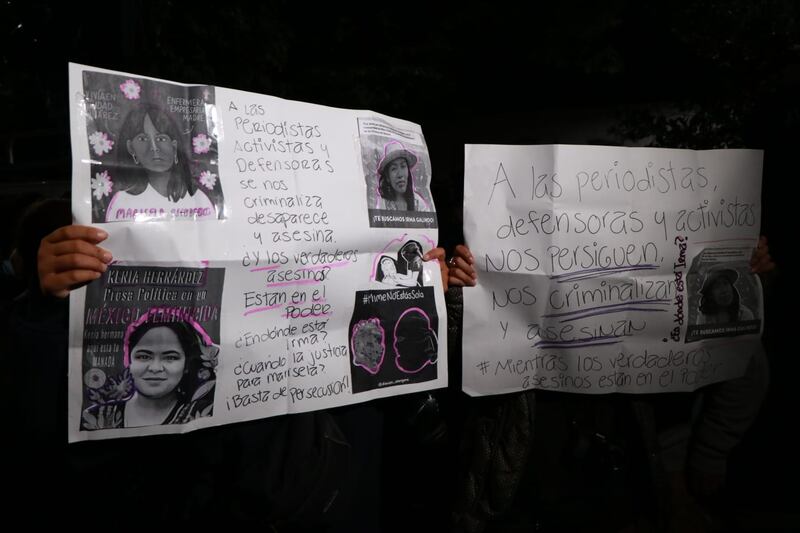 VIVÍA EN
CIUDAD
JUÁREZ
ENFERMERA
EMPRESARIA
MADRE
MARISELA ESCOBEDO
KENIA HERNÁNDEZ
Presa Política en un
MÉXICO FEMINICIDA
Kenia
hermana
aquí esta tu
MANADA
A LAS
PERIODISTAS
ACTIVISTAS Y
DEFENSORAS
SE NOS
CRIMINALIZA
DESAPARECE
Y ASESINA.
¿Y LOS VERDADEROS
ASESINOS?
ESTÁN EN EL
PODER.
¿ENDÓNDE ESTÁ
IRMA?
¿CUANDO LA JUSTICIA
PARA MARISELA?
¡BASTA DE PERSECUSIÓN!
¡TE BUSCAMOS IRMA GALINDO!
#MimeNoEstásSola
A las periodistas,
defensoras y activistas
NOS PERSIGUEN,
NOS CRIMINALIZAN
Y ASESINAN
# Mientras los verdaderos
asesinos están en el Poder
¿En dónde está Irma?
¡TE BUSCAMOS IRMA GALINDO!